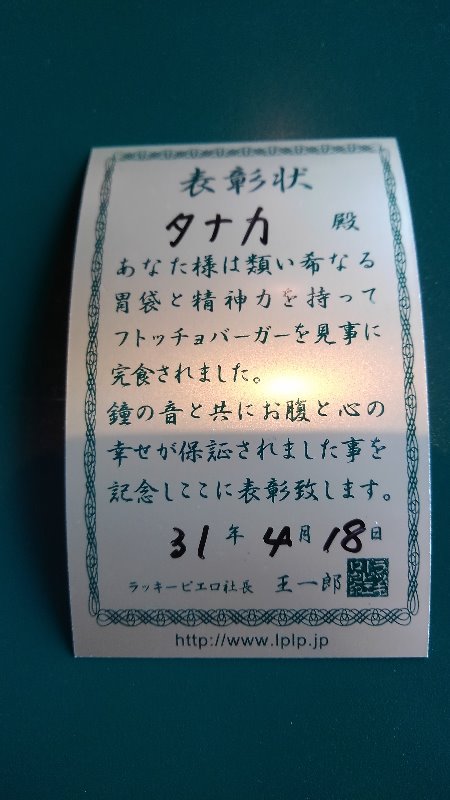 表彰状
タナカ 殿
あなた様は類い希なる
胃袋と精神力を持って
フトッチョバーガーを見事に
完食されました。
鐘の音と共にお腹と心の
幸せが保証されました事を
記念しここに表彰致します。
31年4月18日
ラッキーピエロ社長 王一郎
http://www.lplp.jp